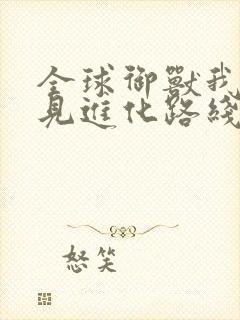 全球御獸我
見進化路綫
怒笑